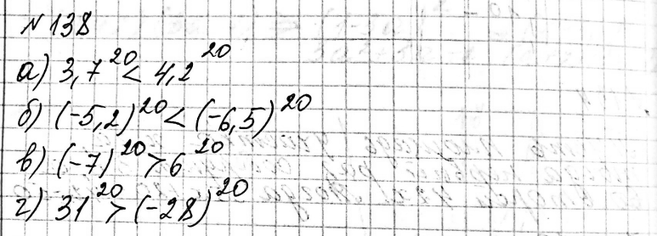 №138
а) 3,7²⁰ < 4,2²⁰
б) (-5,2)²⁰ < (-6,5)²⁰
в) (-7)²⁰ > 6²⁰
г) 31²⁰ > (-28)²⁰